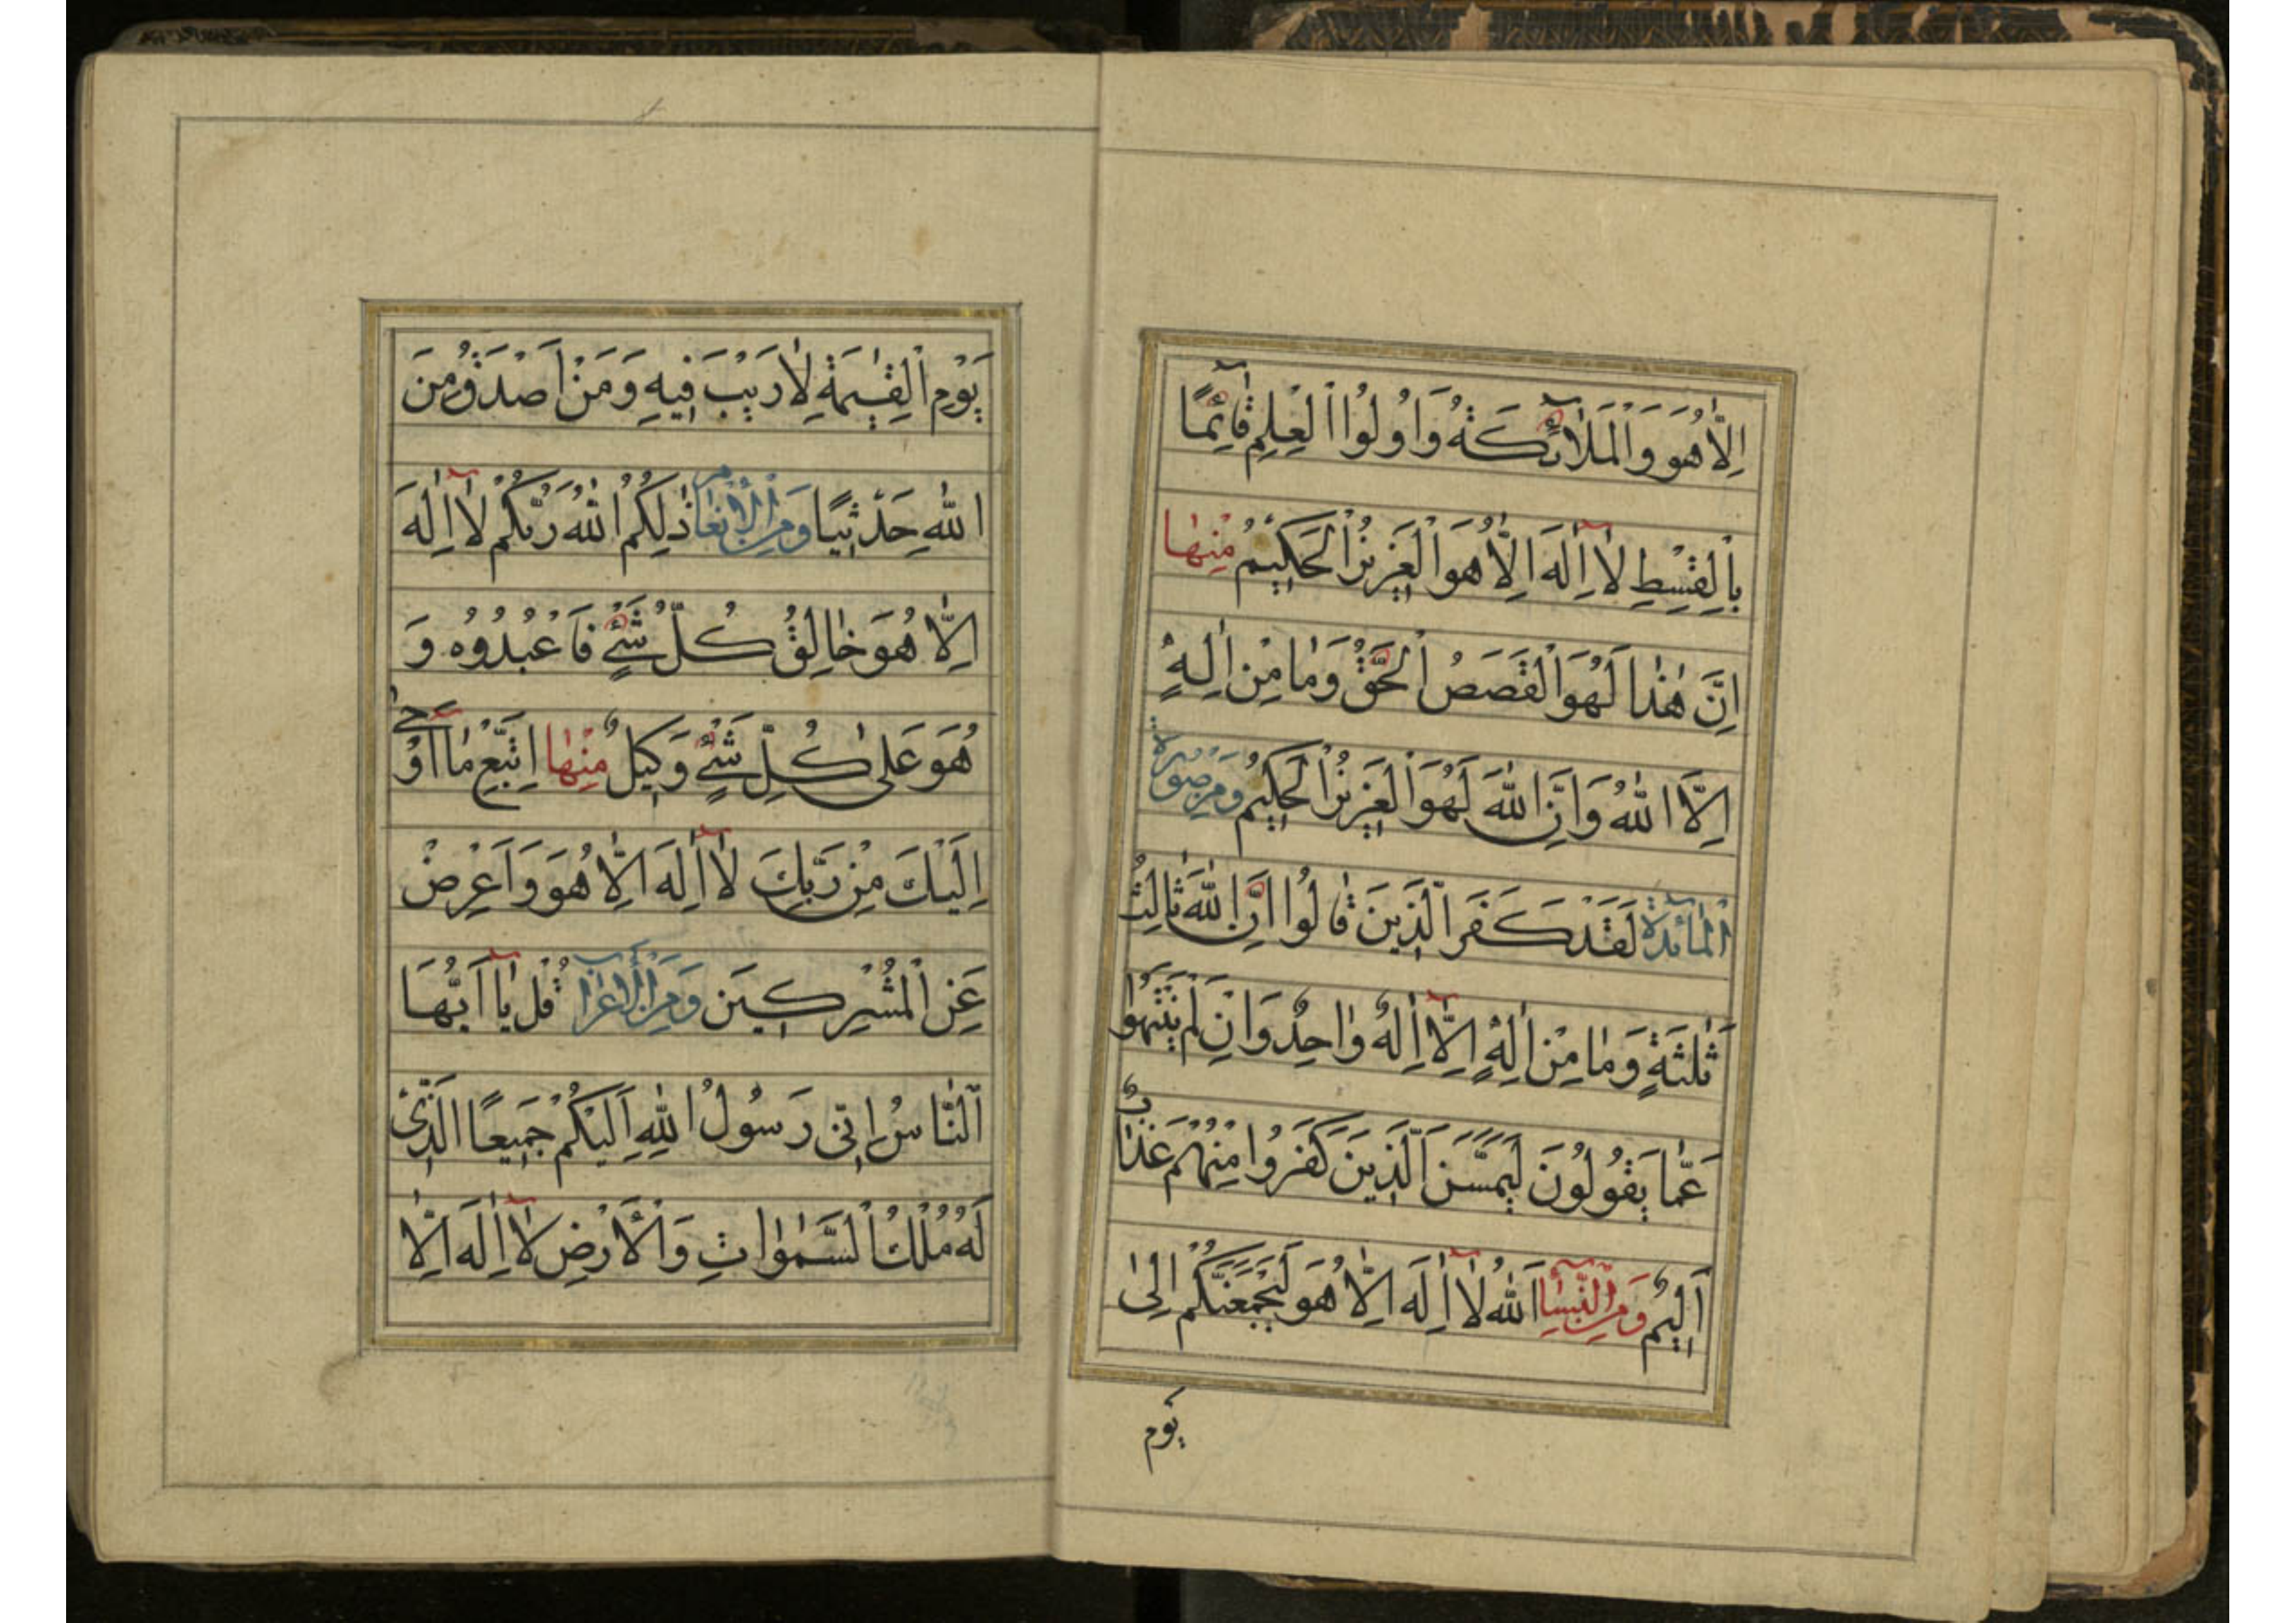 اِلّٰا هُوَ وَالْمَلٰائِكَةُ وَاُولُوا الْعِلْمِ قٰائِمًا
بِالْقِسْطِ لٰا اِلٰهَ اِلّٰا هُوَ الْعَزِيزُ الْحَكِيمُ مِنْهٰا
اِنَّ هٰذٰا لَهُوَ الْقَصَصُ الْحَقُّ وَمٰا مِنْ اِلٰهٍ
اِلَّا اللّٰهُ وَاِنَّ اللّٰهَ لَهُوَ الْعَزِيزُ الْحَكِيمُ وَمِنْ صُورَةِ
الْمٰائِدَةِ لَقَدْ كَفَرَ الَّذِينَ قٰالُوا اِنَّ اللّٰهَ ثٰالِثُ
ثَلٰثَةٍ وَمٰا مِنْ اِلٰهٍ اِلّٰا اِلٰهٌ وٰاحِدٌ وَاِنْ لَمْ يَنْتَهُوا
عَمّٰا يَقُولُونَ لَيَمَسَّنَّ الَّذِينَ كَفَرُوا مِنْهُمْ عَذٰابٌ
اَلِيمٌ وَمِنَ النِّسٰا اَللّٰهُ لٰا اِلٰهَ اِلّٰا هُوَ لَيَجْمَعَنَّكُمْ اِلىٰ
يَوْمِ
يَوْمِ الْقِيٰمَةِ لٰا رَيْبَ فِيهِ وَمَنْ اَصْدَقُ مِنَ
اللّٰهِ حَدِيثًا وَمِنَ الْاَنْعٰام ذٰلِكُمُ اللّٰهُ رَبُّكُمْ لٰا اِلٰهَ
اِلّٰا هُوَ خٰالِقُ كُلِّ شَيْءٍ فَاعْبُدُوُه وَ
هُوَ عَلىٰ كُلِّ شَيْءٍ وَكِيلٌ مِنْهٰا اِتَّبِعْ مٰا اُوحِيَ
اِلَيْكَ مِنْ رَبِّكَ لٰا اِلٰهَ اِلّٰا هُوَ وَاَعْرِضْ
عَنِ الْمُشْرِكِينَ وَمِنَ الْاَعْرٰاف قُلْ يٰا اَيُّهَا
النّٰاسُ اِنّي رَسُولُ اللّٰهِ اِلَيْكُمْ جَمِيعًا الَّذِي
لَهُ مُلْكُ السَّمٰوٰاتِ وَالْاَرْضِ لٰا اِلٰهَ اِلّٰا